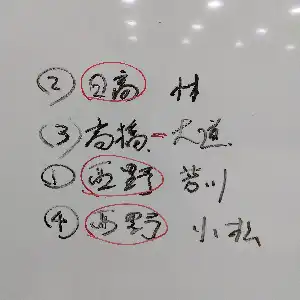 ② 日高 林
③ 高橋ー大道
① 西野 芳川
④ 西野 小松